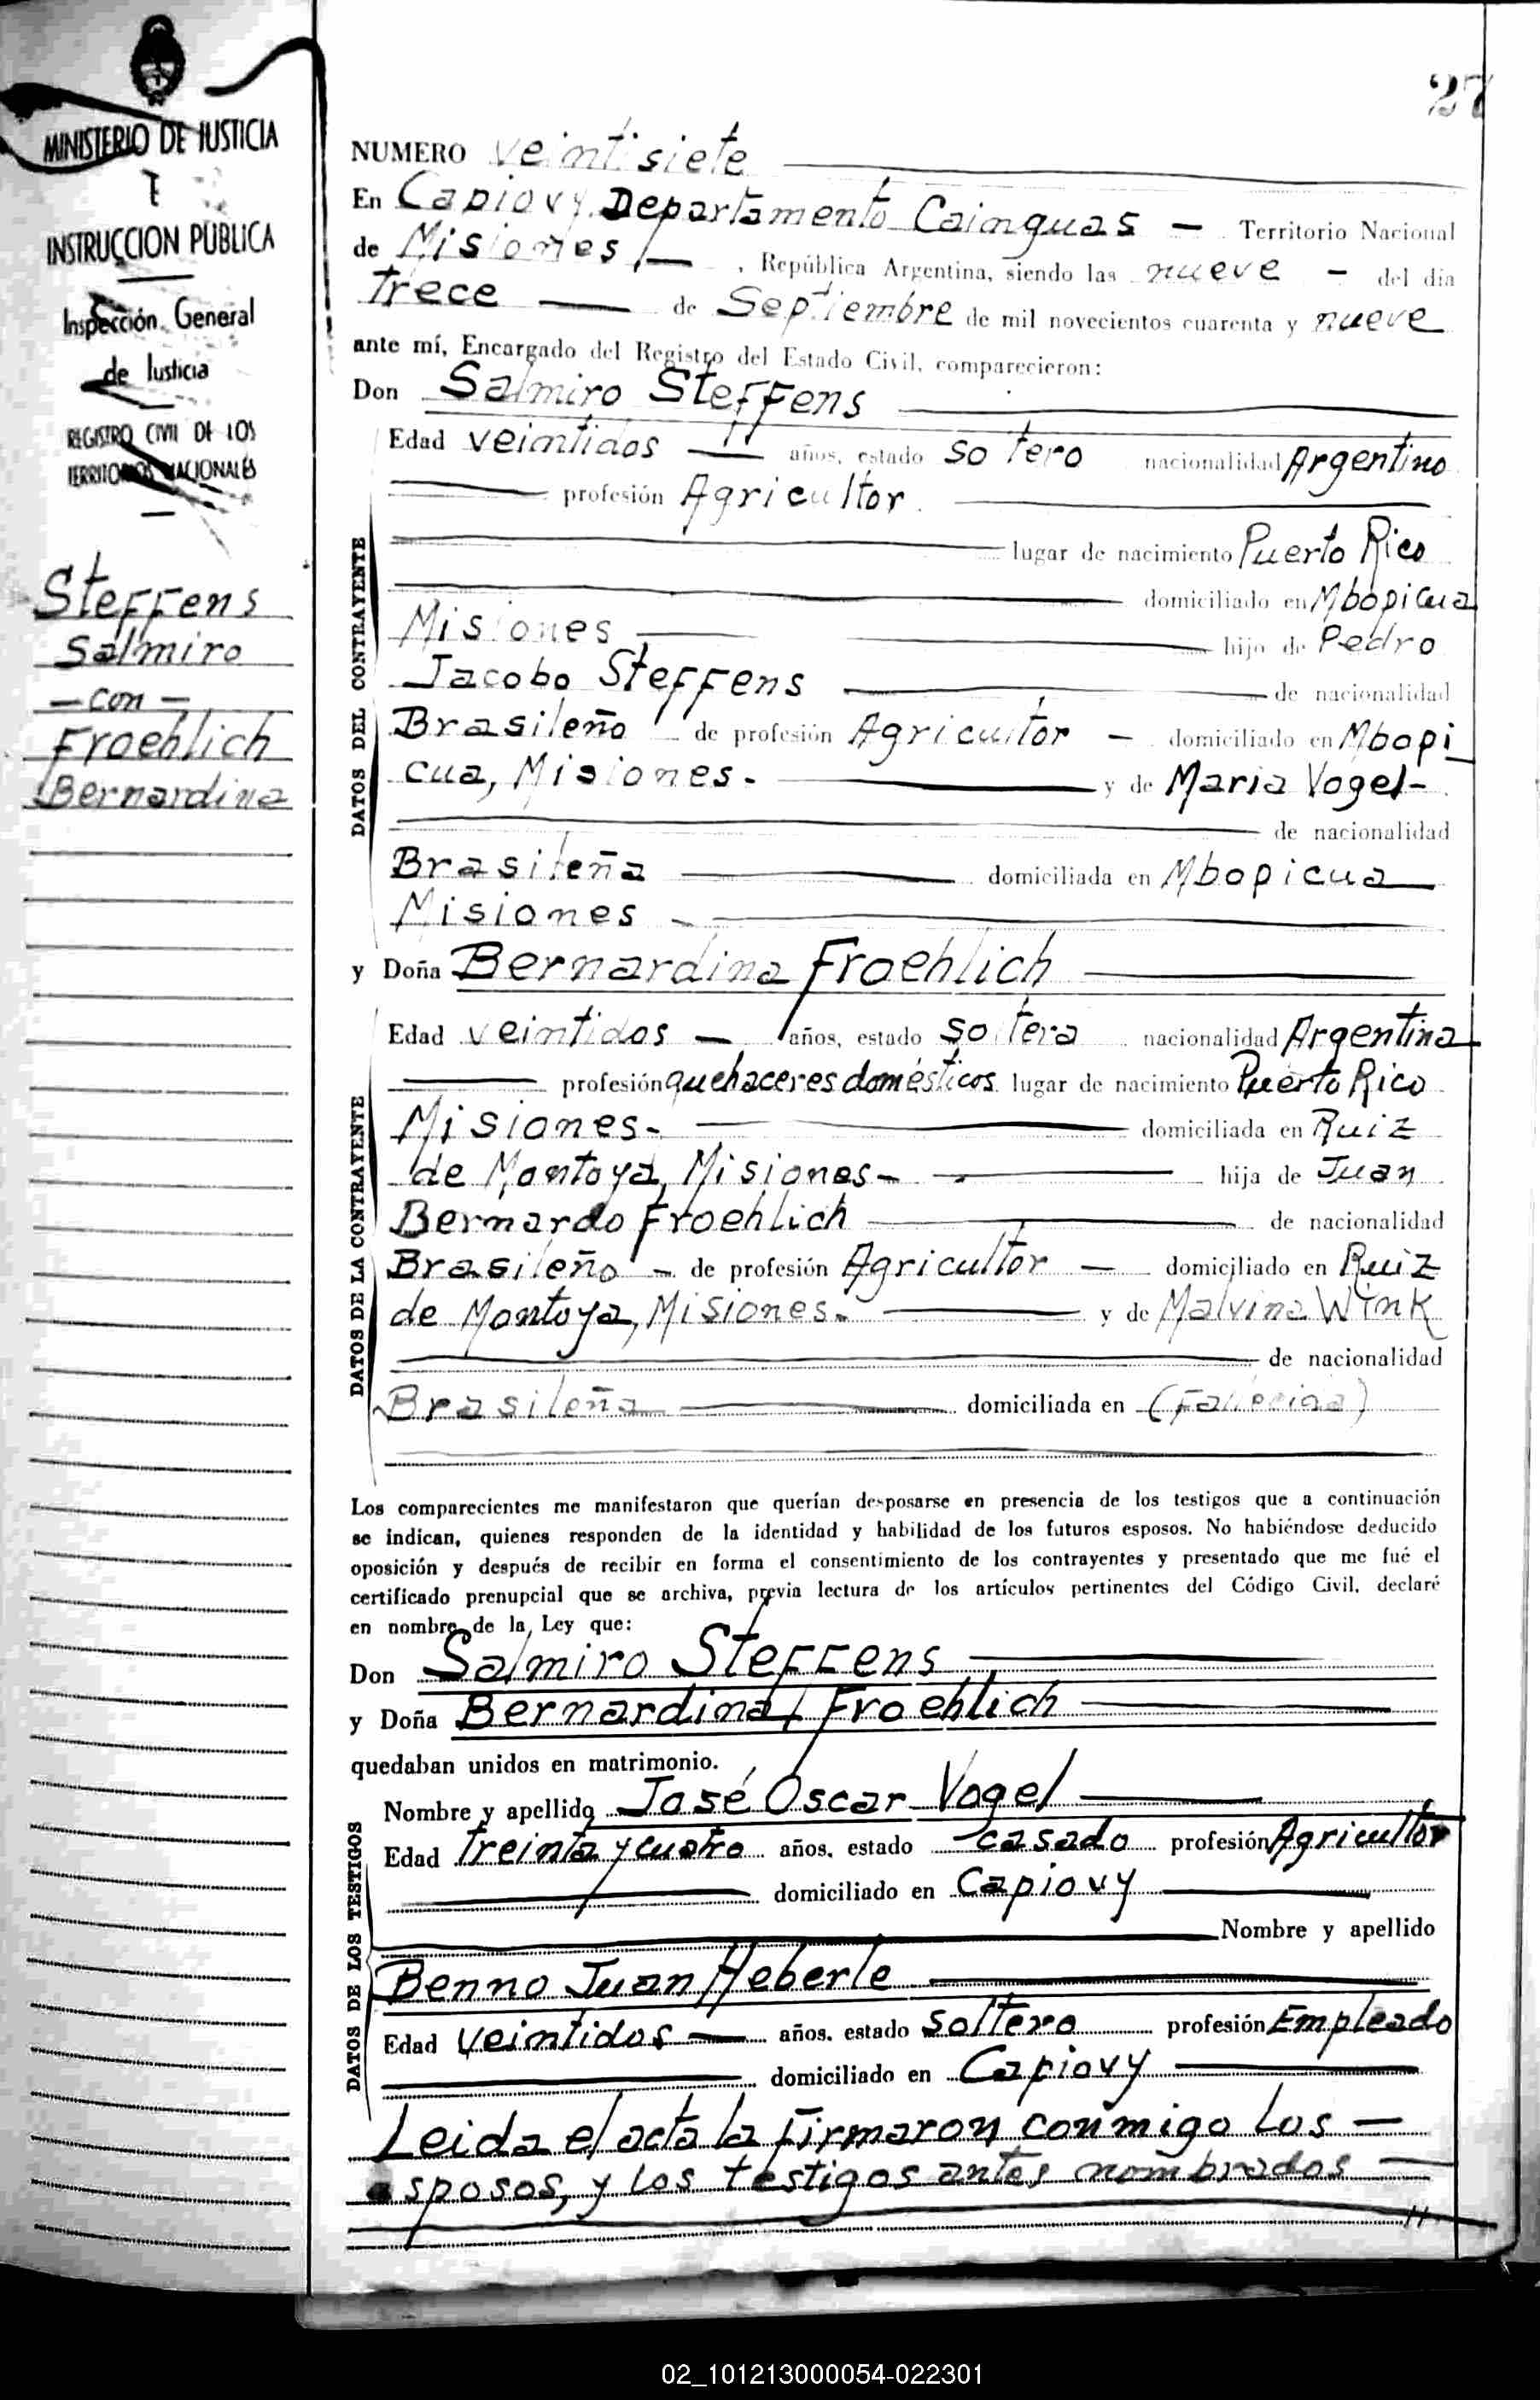 27
MINISTERIO DE JUSTICIA
E
INSTRUCCION PUBLICA
Inspección General
de Justicia
REGISTRO CIVIL DE LOS
TERRITORIOS NACIONALES
Steffens
Salmiro
— con —
Froehlich
Bernardina
NUMERO veintisiete
En Capiovy, Departamento Cainguas — Territorio Nacional
de Misiones, — , República Argentina, siendo las nueve — del día
trece — de Septiembre de mil novecientos cuarenta y nueve
ante mí, Encargado del Registro del Estado Civil, comparecieron:
Don Salmiro Steffens
Edad veintidos — años, estado soltero nacionalidad Argentino
profesión Agricultor
lugar de nacimiento Puerto Rico
domiciliado en Mbopicua
Misiones — hijo de Pedro
Jacobo Steffens — de nacionalidad
Brasileño — de profesión Agricultor — domiciliado en Mbopi
cua, Misiones. — y de Maria Vogel -
de nacionalidad
Brasileña — domiciliada en Mbopicua
Misiones —
DATOS DEL CONTRAYENTE
y Doña Bernardina Froehlich
Edad veintidos — años, estado soltera nacionalidad Argentina
profesión quehaceres domésticos lugar de nacimiento Puerto Rico
Misiones - — domiciliada en Ruiz
de Montoya, Misiones - — hija de Juan
Bernardo Froehlich — de nacionalidad
Brasileño — de profesión Agricultor — domiciliado en Ruiz
de Montoya, Misiones. — y de Malvina Wink
de nacionalidad
Brasileña — domiciliada en (Fallecida)
DATOS DE LA CONTRAYENTE
Los comparecientes me manifestaron que querían desposarse en presencia de los testigos que a continuación
se indican, quienes responden de la identidad y habilidad de los futuros esposos. No habiéndose deducido
oposición y después de recibir en forma el consentimiento de los contrayentes y presentado que me fué el
certificado prenupcial que se archiva, previa lectura de los artículos pertinentes del Código Civil, declaré
en nombre de la Ley que:
Don Salmiro Steffens
y Doña Bernardina Froehlich
quedaban unidos en matrimonio.
Nombre y apellido José Oscar Vogel
Edad treinta y cuatro años, estado casado profesión Agricultor
domiciliado en Capiovy
Nombre y apellido
Benno Juan Heberle
Edad veintidos — años, estado soltero profesión Empleado
domiciliado en Capiovy
DATOS DE LOS TESTIGOS
Leida el acta la firmaron conmigo los —
esposos, y los testigos antes nombrados —
02_101213000054-022301